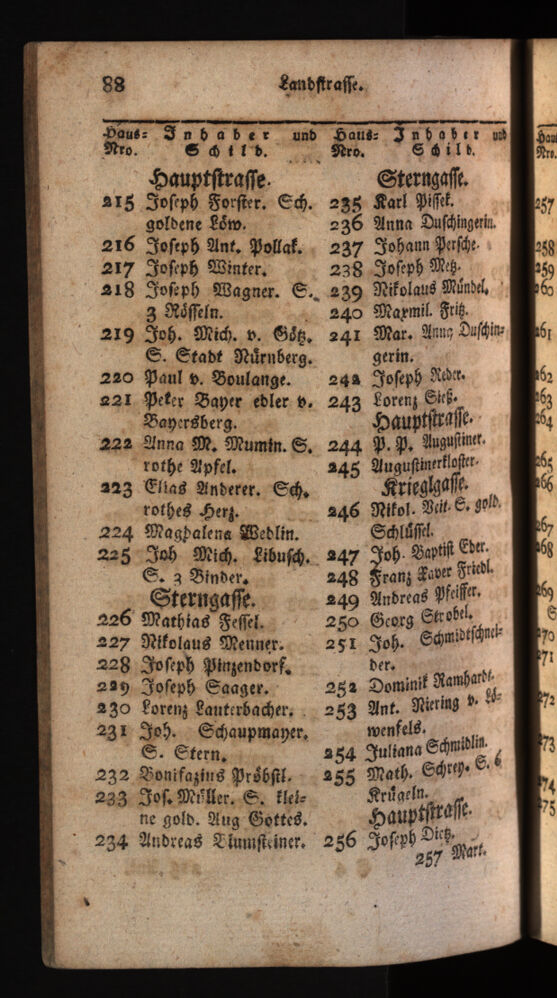 88 Landstrasse.
Haus= Inhaber und
Nro. Schild.
Hauptstrasse.
215 Joseph Forster. Sch.
goldene Löw.
216 Joseph Ant. Pollak.
217 Joseph Winter.
218 Joseph Wagner. S.
3 Rösseln.
219 Joh. Mich. v. Götz.
S. Stadt Nürnberg.
220 Paul v. Boulange.
221 Peter Bayer edler v.
Bayersberg.
222 Anna M. Mumin. S.
rothe Apfel.
223 Elias Anderer. Sch.
rothes Herz.
224 Magdalena Wedlin.
225 Joh Mich. Libusch.
S. 3 Binder.
Sterngasse.
226 Mathias Fessel.
227 Nikolaus Menner.
228 Joseph Pinzendorf.
229 Joseph Saager.
230 Lorenz Lauterbacher.
231 Joh. Schaupmayer.
S. Stern.
232 Bonifazius Pröbstl.
233 Jos. Müller. S. klei=
ne gold. Aug Gottes.
234 Andreas Tiumsteiner.
Haus= Inhaber und
Nro. Schild.
Sterngasse.
235 Karl Pissek.
236 Anna Duschingerin.
237 Johann Persche.
238 Joseph Metz.
239 Nikolaus Mündel.
240 Maxmil. Fritz.
241 Mar. Anna Duschin=
gerin.
242 Joseph Reder.
243 Lorenz Sieß.
Hauptstrasse.
244 P. P. Augustiner.
245 Augustinerkloster.
Krieglgasse.
246 Nikol. Veit. S. gold.
Schlüssel.
247 Joh. Baptist Eder.
248 Franz Xaver Friedl.
249 Andreas Pfeiffer.
250 Georg Strobel.
251 Joh. Schmidtschnei=
der.
252 Dominik Ramhardt.
253 Ant. Niering v. Lö=
wenfels.
254 Juliana Schmidlin.
255 Math. Schrey. S. 6
Krügeln.
Hauptstrasse.
256 Joseph Dietz.
257 Mart.